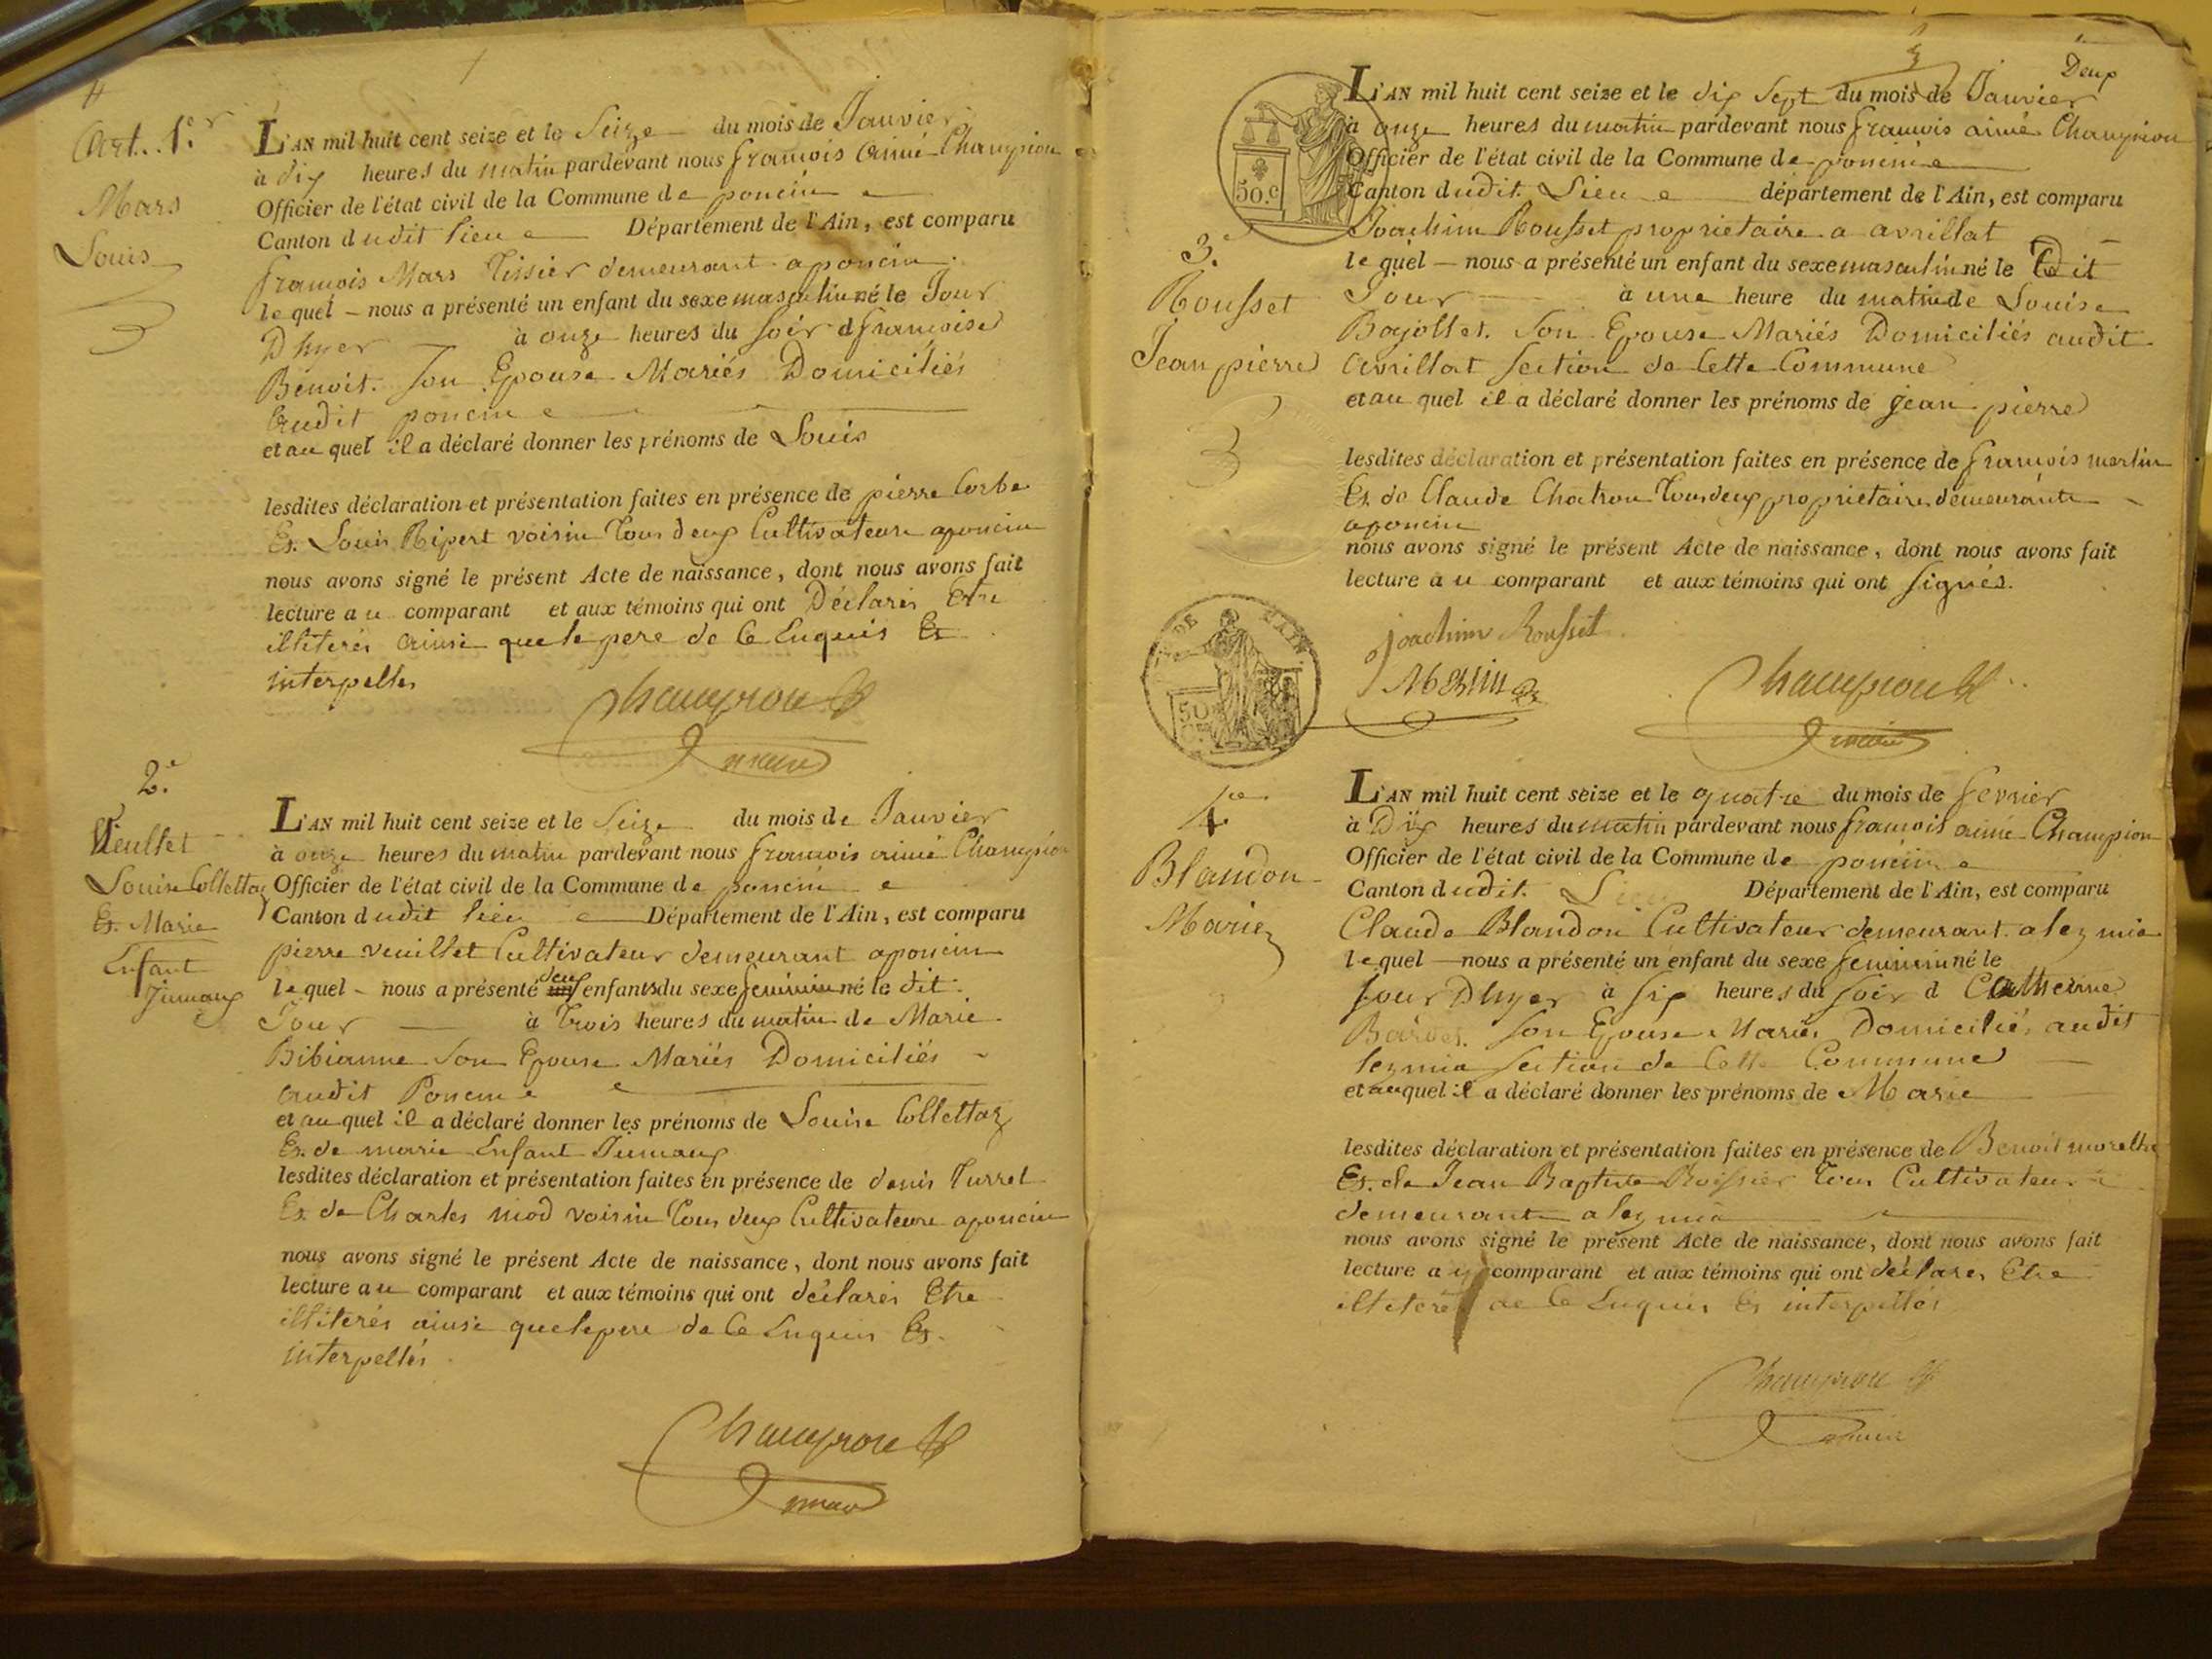 Art. 1.er
Mars
Louis
L'AN mil huit cent seize et le Seize du mois de Janvier
à dix heures du matin pardevant nous françois aimé Champion
Officier de l'état civil de la Commune de poncin
Canton dudit lieu Département de l'Ain, est comparu
françois Mars Tissier demeurant a poncin
lequel – nous a présenté un enfant du sexe masculin né le Jour
Dhyer à onze heures du soir d françoise
Benoit. son Epouse Mariés Domiciliés
audit poncin
et au quel il a déclaré donner les prénoms de Louis
lesdites déclaration et présentation faites en présence de pierre Corbe
Et. Louis Ripert voisin Tous deux Cultivateurs a poncin
nous avons signé le présent Acte de naissance, dont nous avons fait
lecture au comparant et aux témoins qui ont Déclarés Etre
illiterés ainsi que le pere de Ce Enquis Et
interpellés
Champion
maire
2.e
Vieullet
Louise Collettaz
Et. Marie
Enfant
Jumaux
L'AN mil huit cent seize et le Seize du mois de Janvier
à onze heures du matin pardevant nous françois aimé Champion
Officier de l'état civil de la Commune de poncin
Canton dudit lieu Département de l'Ain, est comparu
pierre veuillet Cultivateur demeurant a poncin
lequel – nous a présenté un deux enfants du sexe feminin né le dit
Jour à Trois heures du matin de Marie
Bibianne son Epouse Mariés Domiciliés
audit Poncin
et au quel il a déclaré donner les prénoms de Louise Collettaz
Et. de marie Enfant Jumaux
lesdites déclaration et présentation faites en présence de denis Turrel
Et de Charles niod voisin Tous deux Cultivateurs a poncin
nous avons signé le présent Acte de naissance, dont nous avons fait
lecture au comparant et aux témoins qui ont déclarés Etre
illiterés ainsi que le pere de Ce Enquis Et.
interpellés
Champion
maire
Deux
50.c
3.e
Rousset
Jean pierre
L'AN mil huit cent seize et le dix sept du mois de Janvier
à onze heures du matin pardevant nous françois aimé Champion
Officier de l'état civil de la Commune de poncin
Canton dudit. Lieu département de l'Ain, est comparu
Joachim Rousset proprietaire a avrillat
lequel — nous a présenté un enfant du sexe masculin né le Dit
Jour à une heure du matin de Louise
Bojollet. Son Epouse Mariés Domiciliés audit
avrillat section de Cette Commune
et au quel il a déclaré donner les prénoms de jean pierre
lesdites déclaration et présentation faites en présence de françois merlin
Et. de Claude Chatron Tous deux proprietaires demeurants
a poncin
nous avons signé le présent Acte de naissance, dont nous avons fait
lecture au comparant et aux témoins qui ont signés.
joachim Rousset
Champion
maire
50
4.e
Blandon
Marie
L'AN mil huit cent seize et le quatre du mois de fevrier
à Dix heures du matin pardevant nous françois aimé Champion
Officier de l'état civil de la Commune de poncin
Canton dudit. Lieu Département de l'Ain, est comparu
Claude Blandon Cultivateur demeurant a lezmia
lequel — nous a présenté un enfant du sexe feminin né le
Jour Dhyer à six heures du soir d Catherine
son Epouse Mariés Domiciliés audit
lezmia section de Cette Commune
et au quel il a déclaré donner les prénoms de Marie
lesdites déclaration et présentation faites en présence de Benoit
Et. de Jean Baptiste Tous Cultivateurs
demeurants a lezmia
nous avons signé le présent Acte de naissance, dont nous avons fait
lecture au comparant et aux témoins qui ont déclarés Etre
illiterés de Ce Enquis Et interpellés
Champion
maire